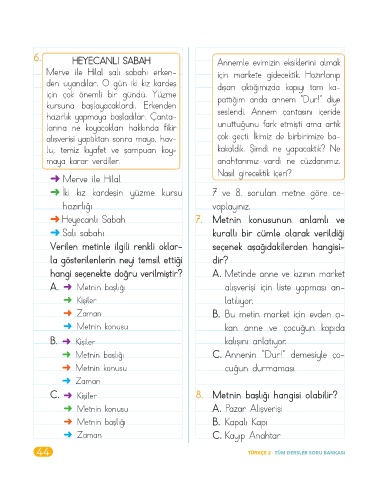 6.
HEYECANLI SABAH
Merve ile Hilal salı sabahı erken-
den uyandılar. O gün iki kız kardeş
için çok önemli bir gündü. Yüzme
kursuna başlayacaklardı. Erkenden
hazırlık yapmaya başladılar. Çanta-
larına ne koyacakları hakkında fikir
alışverişi yaptıktan sonra mayo, hav-
lu, temiz kıyafet ve şampuan koy-
maya karar verdiler.
➜ Merve ile Hilal
➜ İki kız kardeşin yüzme kursu
hazırlığı
➜ Heyecanlı Sabah
➜ Salı sabahı
Verilen metinle ilgili renkli oklar-
la gösterilenlerin neyi temsil ettiği
hangi seçenekte doğru verilmiştir?
A. ➜ Metnin başlığı
➜ Kişiler
➜ Zaman
➜ Metnin konusu
B. ➜ Kişiler
➜ Metnin başlığı
➜ Metnin konusu
➜ Zaman
C. ➜ Kişiler
➜ Metnin konusu
➜ Metnin başlığı
➜ Zaman
Annemle evimizin eksiklerini almak
için markete gidecektik. Hazırlanıp
dışarı çıktığımızda kapıyı tam ka-
pattığım anda annem "Dur!" diye
seslendi. Annem çantasını içeride
unuttuğunu fark etmişti ama artık
çok geçti. İkimiz de birbirimize ba-
kakaldık. Şimdi ne yapacaktık? Ne
anahtarımız vardı ne cüzdanımız.
Nasıl girecektik içeri?
7 ve 8. soruları metne göre ce-
vaplayınız.
7. Metnin konusunun anlamlı ve
kurallı bir cümle olarak verildiği
seçenek aşağıdakilerden hangisi-
dir?
A. Metinde anne ve kızının market
alışverişi için liste yapması an-
latılıyor.
B. Bu metin market için evden çı-
kan anne ve çocuğun kapıda
kalışını anlatıyor.
C. Annenin "Dur!" demesiyle ço-
cuğun durmaması
8. Metnin başlığı hangisi olabilir?
A. Pazar Alışverişi
B. Kapalı Kapı
C. Kayıp Anahtar
44
TÜRKÇE 2 - TÜM DERSLER SORU BANKASI